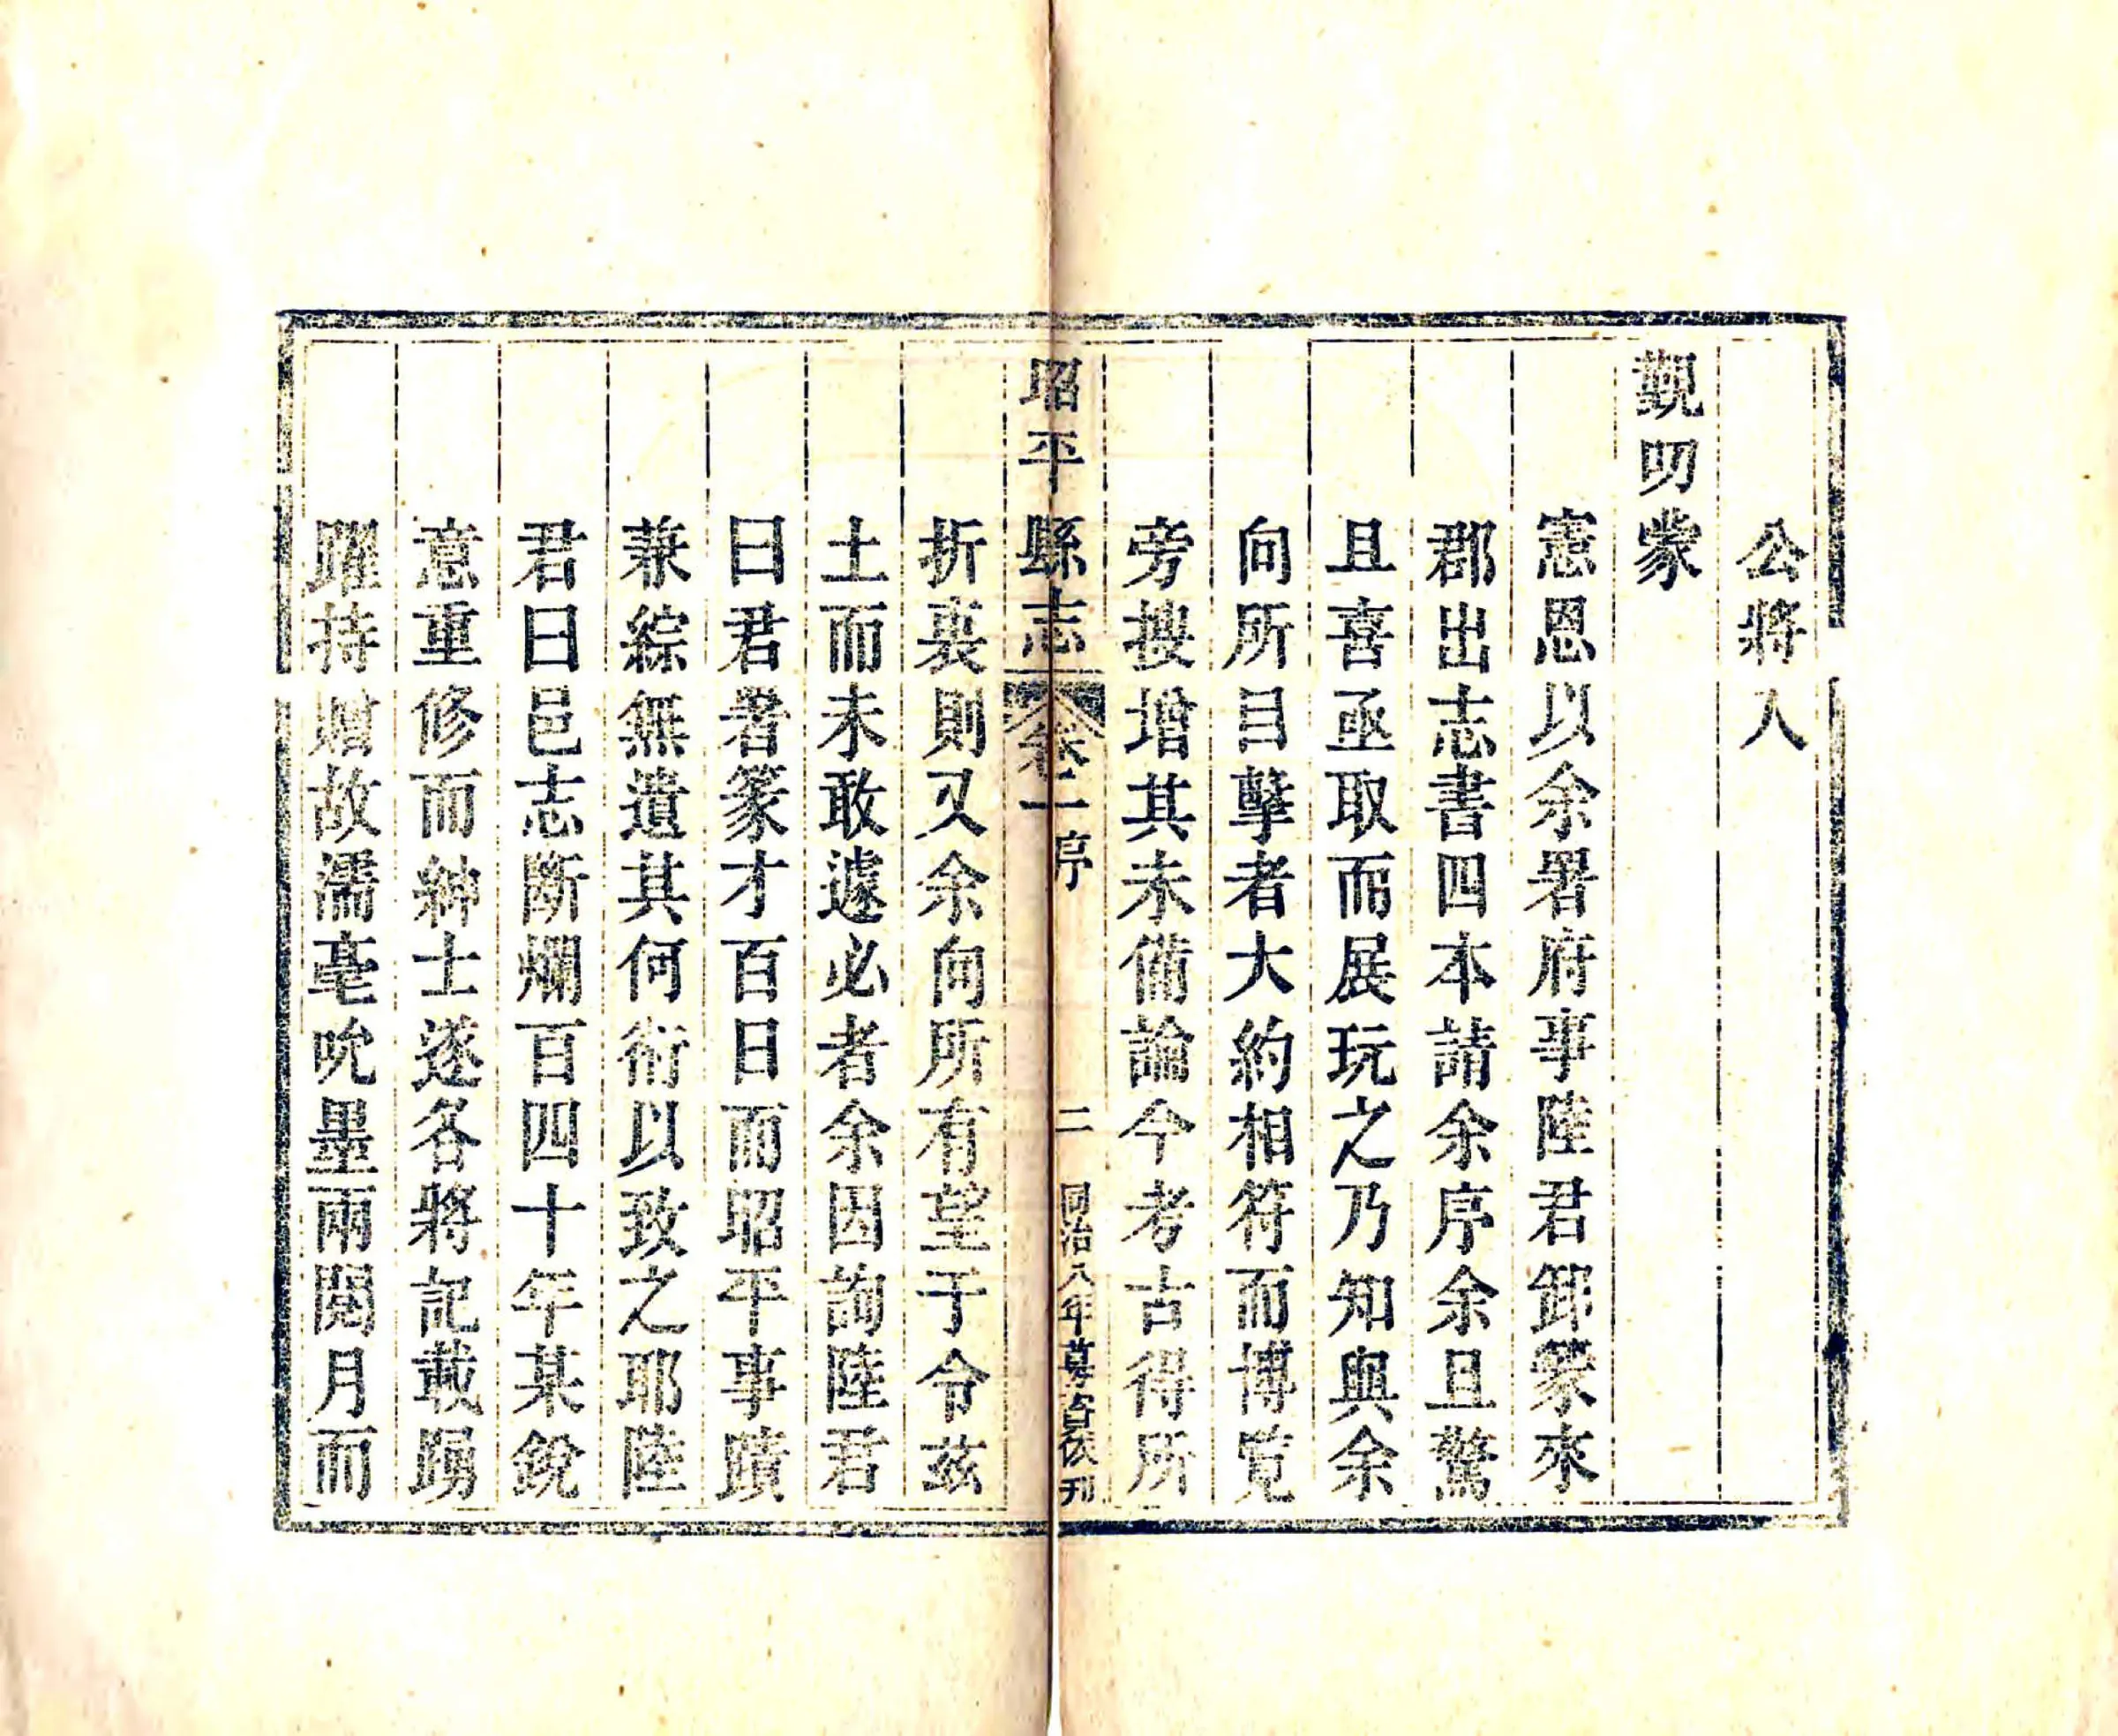 公將入
覲叨蒙
憲恩以余署府事陸君卸篆來
郡出志書四本請余序余且驚
且喜亟取而展玩之乃知與余
向所目擊者大約相符而博覧
旁搜增其未備論今考古得所
昭平縣志 卷一 序 二 同治八年募資依刊
折衷則又余向所有望于令茲
土而未敢遽必者余因詢陸君
曰君署篆才百日而昭平事蹟
兼綜無遺其何術以致之耶陸
君曰邑志斷爛百四十年某銳
意重修而紳士遂各將記載踴
躍持 故濡毫吮墨兩閱月而